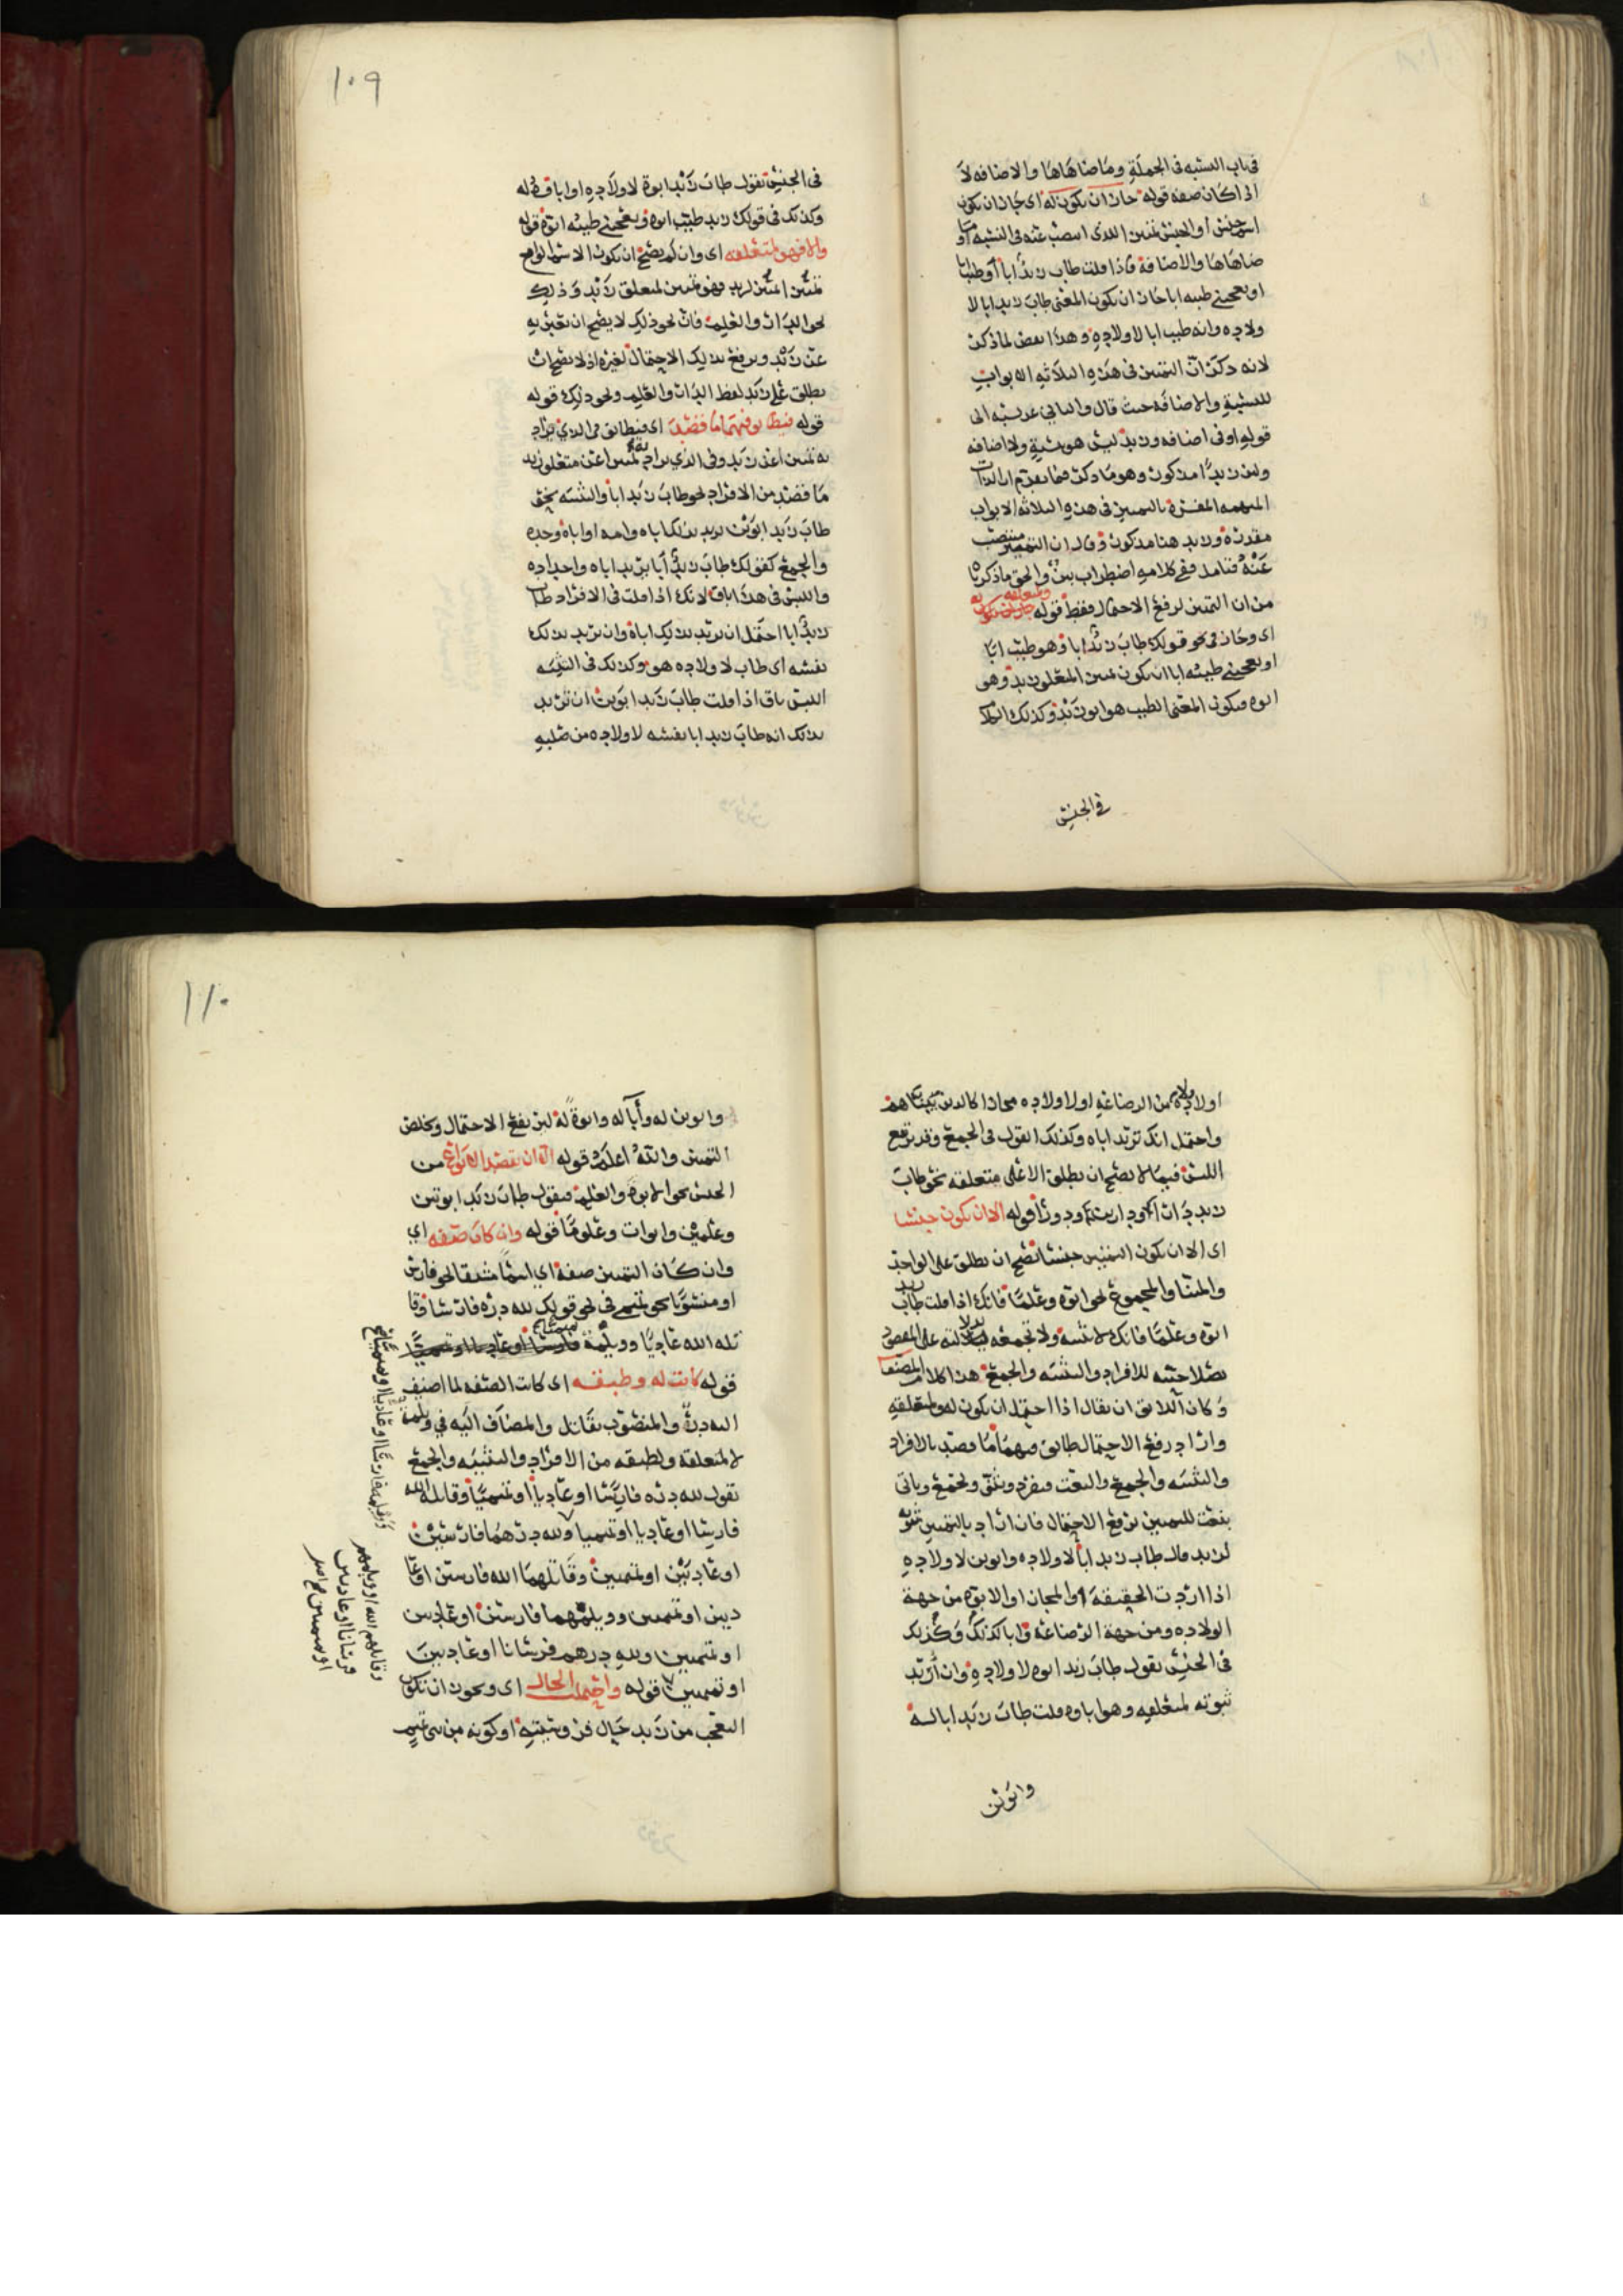 في باب النسبه في الجملة وما ضاهاها والاضافه لا
اذا كان صفه قوله جاز ان يكون له اى جاز ان يكون
اسم جنس او الجنس تمييز الذى انتصب عنه في النسبه او
ضاهاها والاضافة فاذا قلت طاب زيد ابا او طيب ابا
او يعجبني طيبه ابا جاز ان يكون المعنى طاب زيد ابا لا
ولاده وانه طيب ابا لاولاده وهذا بعض لما ذكر
لانه ذكر ان التمييز في هذه الثلاثه الابواب
للنسبة والاضافه حيث قال والثاني عن نسبه الى
قوله او في اضافه وزيد ليس هو نسبة ولا اضافه
ولئن زيدا مذكور وهو ما ذكر فيما تقدم ان الذات
المبهمه المفسرة بالتمييز في هذه الثلاثه الابواب
مقدرة وزيد هنا مذكور وقال ان التمييز منتصب
عنه فتامل ففي كلامه اضطراب بين والحق ما ذكرنا
من ان التمييز لرفع الاحتمال فقط قوله جاز ان يكون له
ولمتعلقه
اى وجاز في نحو قولك طاب زيد ابا وهو طيب ابا
او يعجبني طيبه ابا ان يكون تمييز المتعلق زيد وهو
ابوه فيكون المعنى الطيب هو ابو زيد وكذلك
في الجنس
١٠٩
في الجنس تقول طاب زيد ابوة لاولاده او ابا
وكذلك في قولك زيد طيب ابوه ويعجبني طيبه ابوة قوله
والا فهو لمتعلقه اى وان لم يصح ان يكون الاسم
تمييز اعن زيد فهو تمييز لمتعلق زيد وذلك
نحو الدار والعلم فان نحو ذلك لا يصح ان تعبر به
عن زيد ويرفع بذلك الاحتمال لغيره اذ لا يصح ان
يطلق على زيد لفظ الدار والعلم ونحو ذلك قوله
قوله فيطابق فيهما ما قصد اى فيطابق في الذي يراد
به تمييز اعن زيد وفي الذي يراد به تمييز اعن متعلق زيد
ما قصد من الافراد نحو طاب زيد ابا والتثنيه نحو
طاب زيد ابوين تريد بذلك اباه وامه او اباه وجده
والجمع كقولك طاب زيد آبا تريد اباه واجداده
واللبس في هذا باق لانك اذا قلت في الافراد طاب
زيد ابا احتمل ان تريد بذلك اباه وان تريد بذلك
نفسه اى طاب لاولاده هو وكذلك في التثنيه
اللبس باق اذا قلت طاب زيد ابوين ان تريد
بذلك انه طاب زيد ابا بنفسه لاولاده من صلبه
اولاده من الرضاعه او لاولاده مجازا كالذين تبناهم
واحتمل انك تريد اباه وكذلك القول في الجمع وقد يرتفع
اللبس فيما لا يصح ان يطلق الا على متعلقه نحو طاب
زيد دارا ودارين ودورا قوله الا ان يكون جنسا
اى الا ان يكون التمييز جنسا يصح ان يطلق على الواحد
والمثنا والمجموع نحو ابوة وعلما فانك اذا قلت طاب زيد
ابوة وعلما فانك لا تثنيه ولا تجمعه لدلالته على المقصود
بصلاحيته للافراد والتثنيه والجمع هذا كلام المصنف
وكان اللائق ان يقال اذا احتمل ان يكون له ولمتعلقه
واراد رفع الاحتمال طابق فيهما ما قصد بالافراد
والتثنيه والجمع والنعت فيفرد ويثنى ويجمع وياتي
بنعت للتمييز يرفع الاحتمال فان اراد بالتمييز ثبوته
لزيد قال طاب زيد ابا لاولاده وابوين لاولاده
اذا اردت الحقيقة والمجاز او الابوه من جهة
الولاده ومن جهة الرضاعه وابا كذلك وكذلك
في الجنس تقول طاب زيد ابوه لاولاده وان اريد
ثبوته لمتعلقه وهو اباوه قلت طاب زيد ابا له
وابوين
١١٠
وابوين له وآبا له وابوة له ليرتفع الاحتمال ويخلص
التمييز والله اعلم قوله الا ان يقصد الانواع من
الجنس نحو الابوه والعلم فيقول طاب زيد ابوتين
وعلمين وابوات وعلوما قوله وان كان صفه اي
وان كان التمييز صفه اي اسما مشتقا نحو فارس
او منسوبا نحو تميمي في نحو قولك لله دره فارسا وقا
تله الله عاديا وويلمه
قوله كانت له وطبقه اى كانت الصفه لما اضيف
اليه دره والمنصوب بقاتل والمضاف اليه في ويلمه
لا لمتعلقه ولطبقه من الافراد والتثنيه والجمع
تقول لله دره فارسا او عاديا او تميميا وقاتله الله
فارسا او عاديا او تميميا ولله درهما فارسين
او عاديين او تميميين وقاتلهما الله فارسين او عا
ديين او تميميين وويلمهما فارسين او عاديين
او تميميين ولله درهم فرسانا او عاديين
او تميميين قوله واحتملت الحال اى ويجوز ان تكون
التعجب من زيد حال فروسيته او كونه من بني تميم
وويلمه فارسا او عاديا او تميميا صح
وقاتلهم الله او ويلمهم
فرسانا او عاديين
او تميميين